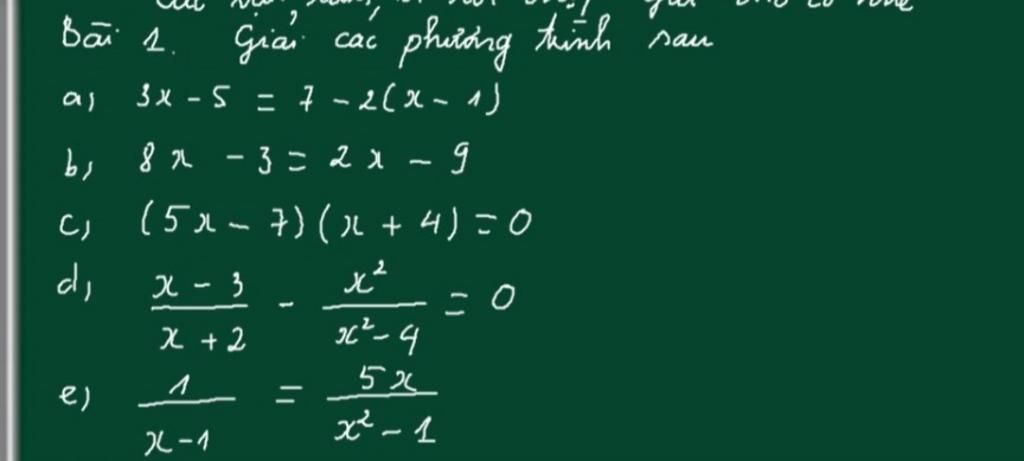 Bài 1. Giải các phương trình sau
a) 3x - 5 = 7 - 2(x - 1)
b) 8x - 3 = 2x - 9
c) (5x - 7)(x + 4) = 0
d) \frac{x - 3}{x + 2} - \frac{x^2}{x^2 - 4} = 0
e) \frac{1}{x - 1} = \frac{5x}{x^2 - 1}